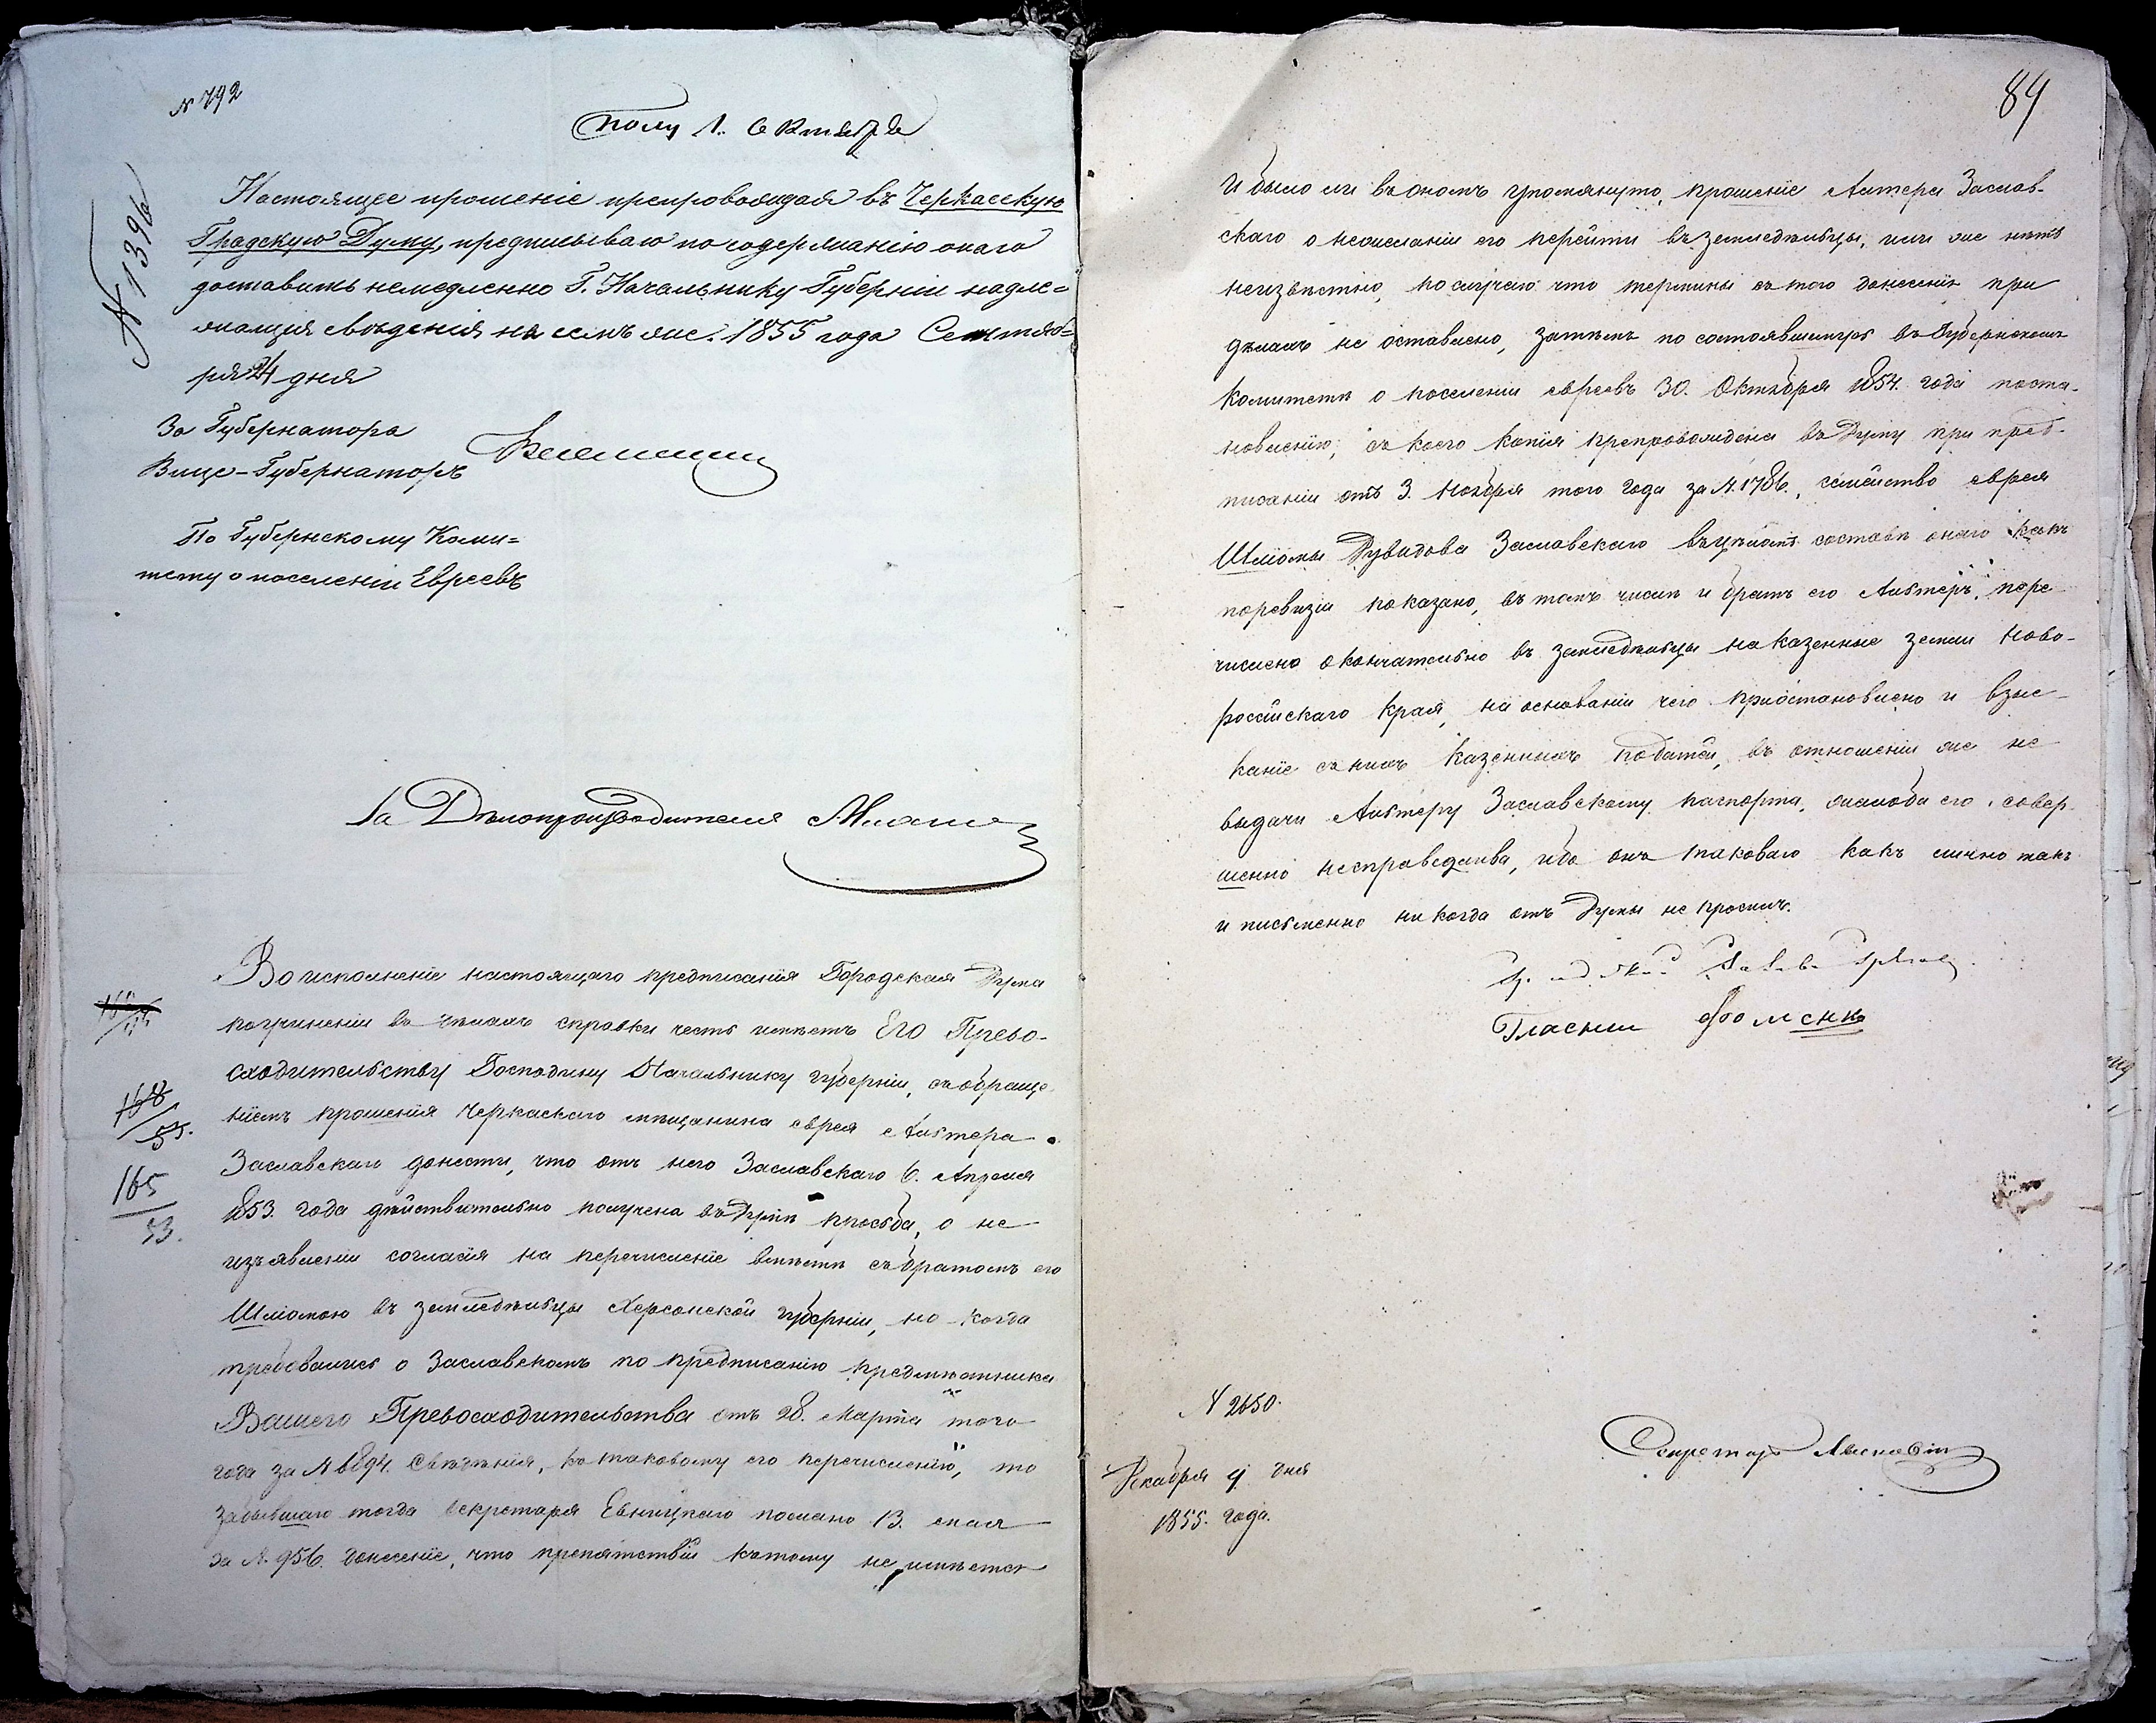 № 792
Полу 1. Октября
№ 1396
Настоящее прошеніе препровождая въ Черкасскую
Градскую Думу, предписываю по содержанію онаго
доставить немедленно Г. Начальнику Губерніи надле=
жащія свѣденія на семъ же. 1855 года Сентяб=
ря 24 дня
За Губернатора
Вице-Губернаторъ
По Губернскому Коми=
тету о поселеніи Евреевъ
За Дѣлопроизводителя
Во исполненіе настоящаго предписанія Городская Дума
по учиненіи въ дѣлахъ справки честь имѣетъ Его Прево-
сходительству Господину Начальнику губерніи, съ обраще
ніемъ прошенія Черкаскаго мѣщанина еврея Альтера
168
55.
Заславскаго донести, что отъ него Заславскаго 6. Апреля
165
53.
1853. года дѣйствительно получена въ Думѣ просьба, о не
изъявленіи согласія на перечисленіе вмѣстѣ съ братомъ его
Шліомою въ земледѣльцы Херсонской губерніи, но когда
требовались о Заславскомъ по предписанію предмѣстника
Вашего Превосходительства отъ 28. Марта того
года за № 6894. свѣдѣнія, къ таковому его перечисленію, то
за бывшаго тогда секретаря послано 13. мая
за №. 956. донесеніе, что препятствій къ тому не имѣется
84
и было ли въ ономъ упомянуто, прошеніе Алтера Заслав-
скаго о нежеланіи его перейти въ земледѣльцы, или же нѣтъ
неизвѣстно, по случаю что термины съ того донесенія при
дѣлахъ не оставлено, затѣмъ по состоявшемуся въ Губернскомъ
Комитетѣ о поселеніи евреевъ 30. Октября 1854. года поста-
новленію, съ коего копія препровождена въ Думу при пред-
писаніи отъ 3. Ноября того года за №. 1786., семейство еврея
Шліомы Дувидова Заславскаго въ цѣломъ составѣ онаго какъ
по ревизіи показано, въ томъ числѣ и братъ его Альтеръ, пере
числено окончательно въ земледѣльцы на казенные земли Ново-
россійскаго края, на основаніи чего приостановлено и взыс-
каніе съ нихъ казенныхъ податей, въ отношеніи же не
выдачи Альтеру Заславскому паспорта, жалоба его совер-
шенно несправедлива, ибо онъ таковаго какъ лично такъ
и письменно никогда отъ Думы не просилъ.
Гласній Фоменко
№ 2650.
Декабря 9 дня
1855. года.
Секретарь